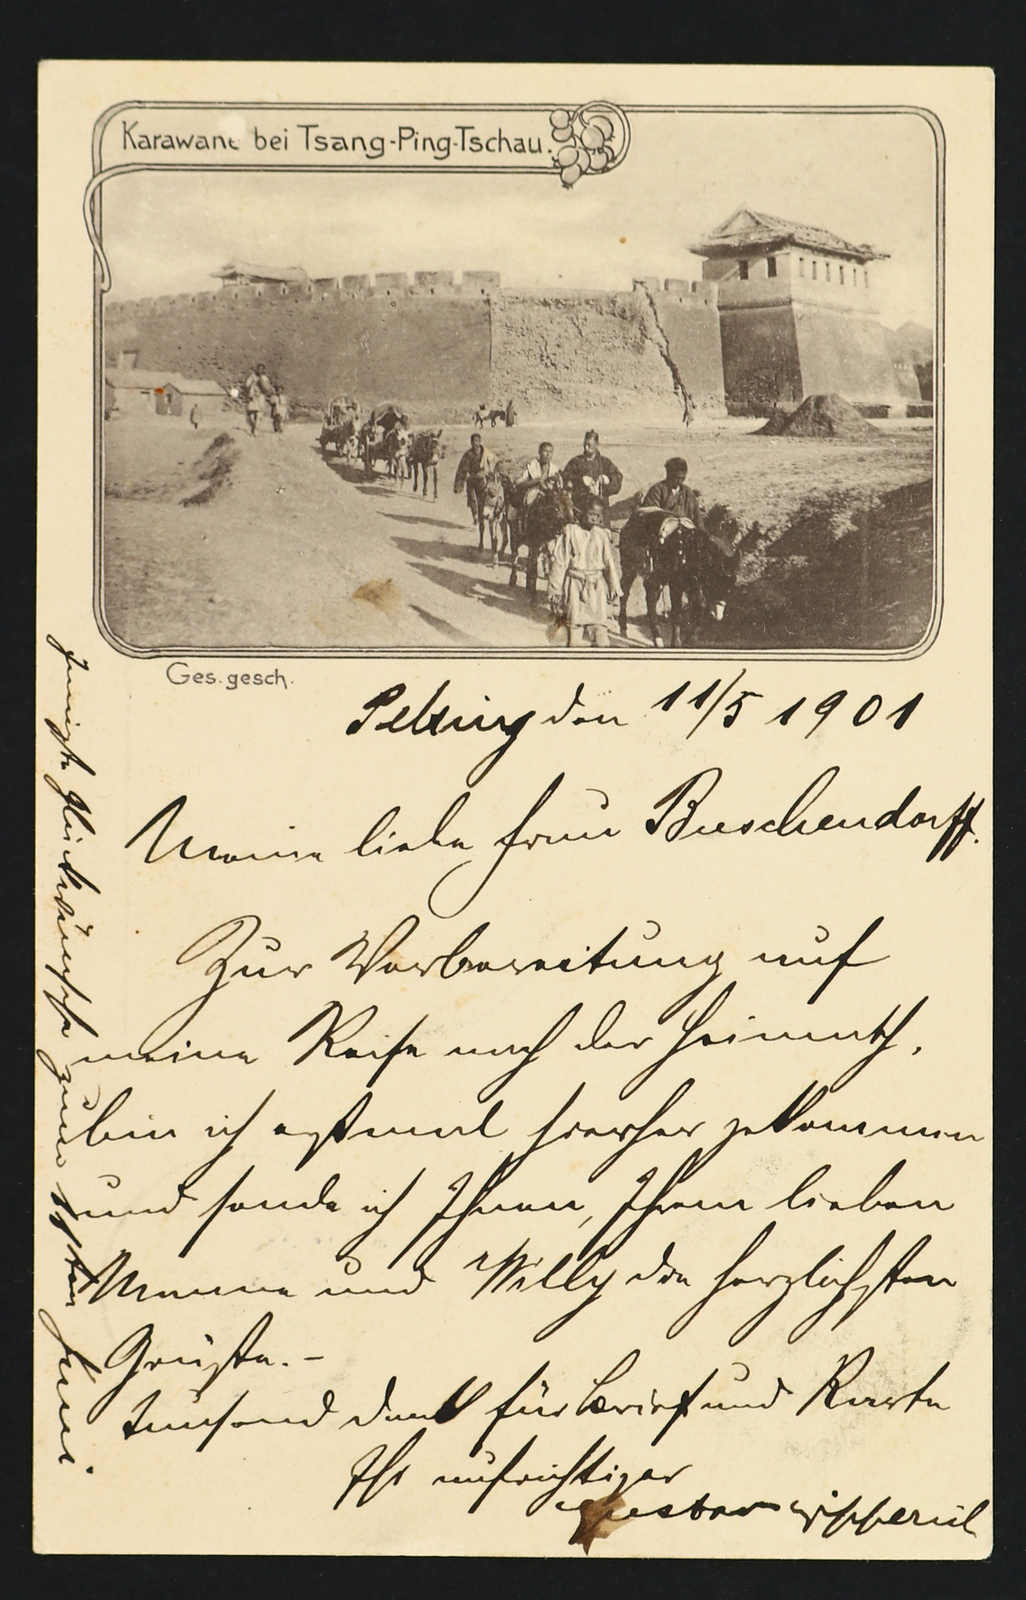 Karawane bei Tsang-Ping-Tschau.
Ges. gesch.
Peking den 11/5 1901
Meine liebe Frau Buschendorff.
Zur Vorbereitung auf
meine Reise nach der Heimath,
bin ich erstmal hierher gekommen
und sende ich Ihnen, Ihrem lieben
Manne und Willy die herzlichsten
Grüße. –
Tausend Dank für Brief und Karte
Ihr aufrichtiger
Gustav
Innigste Glückwünsche zum ten Juni.